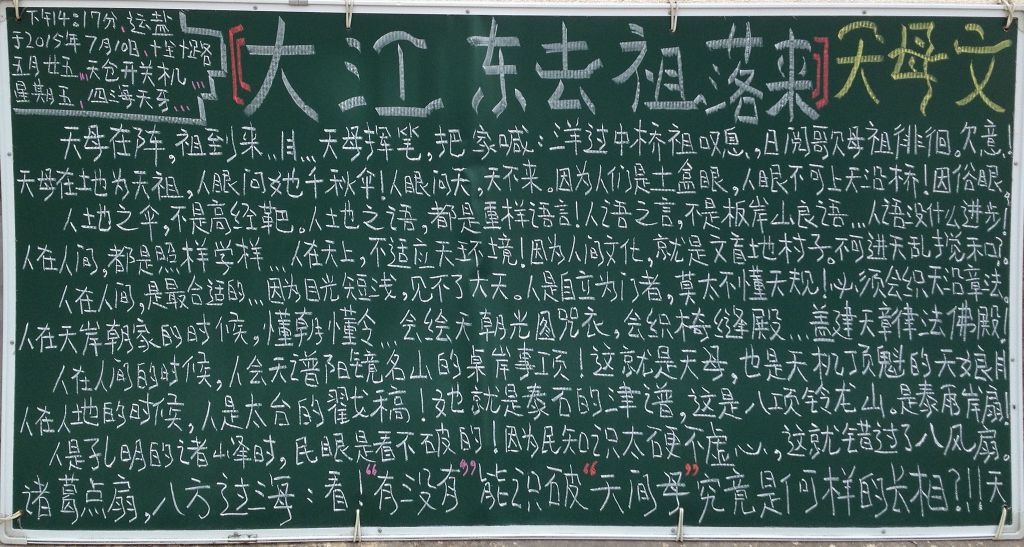 下午14:17分，运盐
于2015年7月10日、十至垭路
五月廿五，天仓开关机，…
星期五，四海天爷…
【大江东去祖落来】天母文
天母在阵，祖到来…自…天母挥笔，把家喊：洋过中桥祖叹息，日阅歌母祖徘徊。欠意！
天母在土地为天祖，人眼问她千秋伞！人眼问天，天不来。因为人们是土盒眼，人眼不可上天沿桥！因俗眼。
人土地之伞，不是高经靶。人土地之语，都是重样语言！人语之言，不是板岸山良语…人语没什么进步！
人在人间，都是照样学样…人在天上，不适应天环境！因为人间文化，就是文盲地村子。不可进天乱搅和了。
人在人间，是最合适的…因为目光短浅，见不了大天。人是自立为门者，莫大不懂天规！必须会织天沿章法。
人在天岸朝家的时候，懂朝懂令…会绘天朝光圆咒衣，会织椅缝殿…盖建天章律法佛殿！
人在人间的时候，人会天谱阳镜名山的桌岸事项！这就是天母，也是天机顶魁的天娘月
人在人地的时候，人是太台的翟戈稿！她就是泰石的津谱，这是八项铃龙山。是泰甫岸扇！
人是孔明的诸峰时，民眼是看不破的！因为民知识太硬不虚心，这就错过了八风扇。
诸葛点扇，八方过海：看！“有没有”能识破“天间母”究竟是何样的长相？!!天